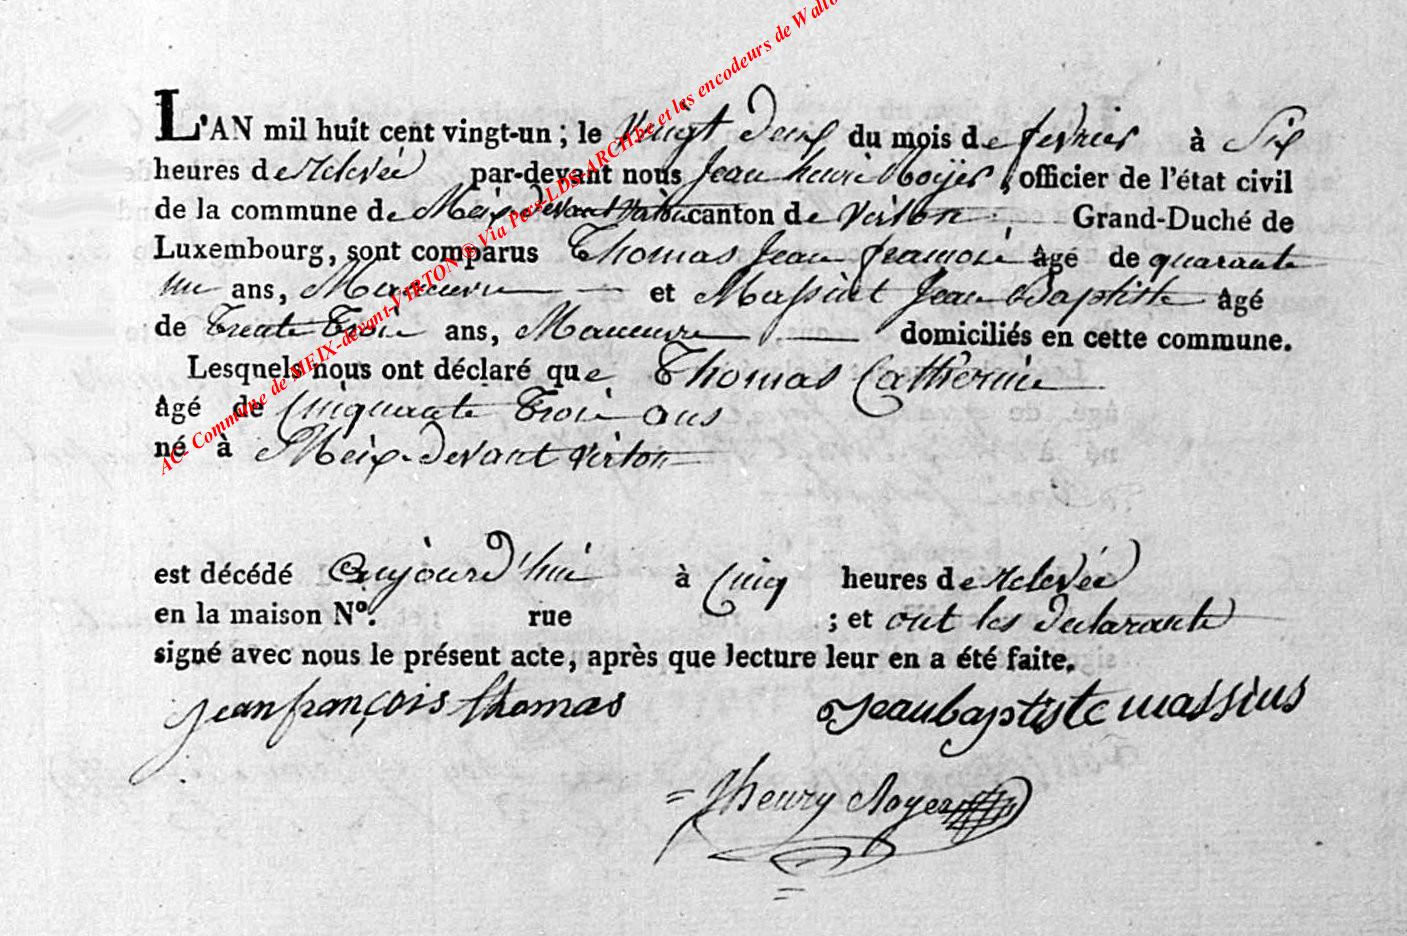 L'AN mil huit cent vingt-un; le Vingt deux du mois de fevrier à Six
heures de Relevée par-devant nous Jean henri Royer, officier de l'état civil
de la commune de Meix devant virton canton de virton Grand-Duché de
Luxembourg, sont comparus Thomas Jean françois âgé de quarante
un ans, Manœuvre et Massiut Jean Baptiste âgé
de Trente Trois ans, Manœuvre domiciliés en cette commune.
Lesquels nous ont déclaré que Thomas Catherine
âgé de Cinquante Trois ans
né à Meix-devant virton
est décédé aujourd'hui à Cinq heures de Relevée
en la maison N°. rue ; et ont les declarants
signé avec nous le présent acte, après que lecture leur en a été faite.
jeanfrançois thomas Jeanbaptiste massius
Jhenry Royer
AC- Commune de MEIX-devant-VIRTON ® Via Pers-LDS-ARCH.be et les encodeurs de Wallo